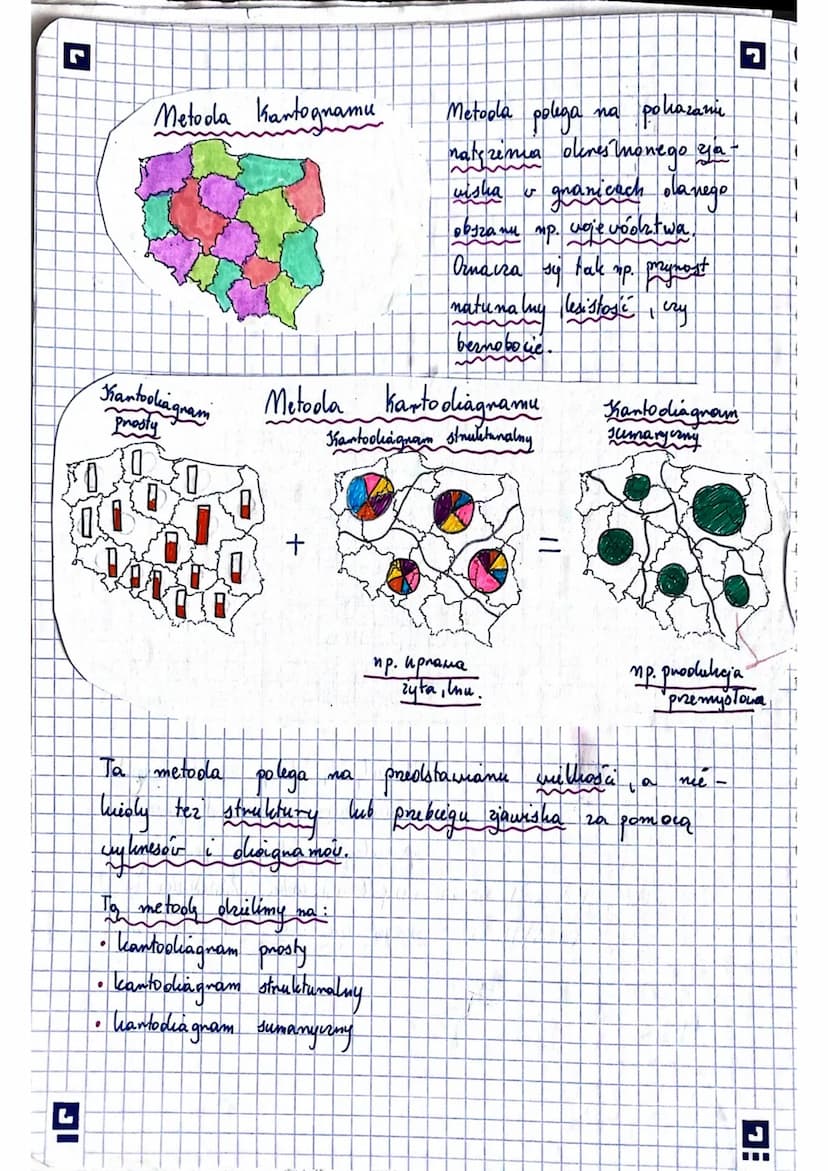 Metoda Kartogramu
Metoda polega na pokazaniu
natężenia określonego zja-
wiska w granicach danego
obszaru np. województwa.
Oznacza się tak np. przyrost
naturalny, lesistość, czy
bezrobocie.
Kartodiagram
prosty
Metoda Kartodiagramu
Kartodiagram strukturalny
Kartodiagram
sumaryczny
+
=
np. uprawa
żyta, lnu.
np. produkcja
przemysłowa
Ta metoda polega na przedstawianu wielkości, a nie-
kiedy też struktury lub przebiegu zjawiska za pomocą
wykresów i diagramów.
Tą metodę dzielimy na:
• kartodiagram prosty
• kartodiagram strukturalny
• kartodiagram sumaryczny